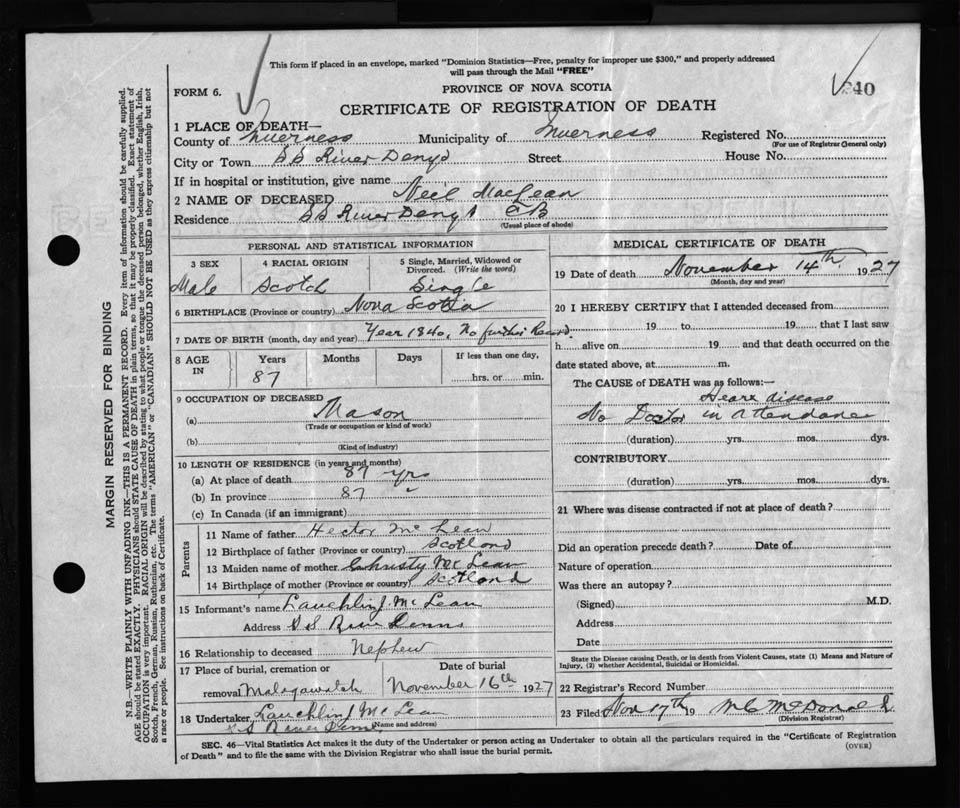 This form if placed in an envelope, marked "Dominion Statistics—Free, penalty for improper use $300," and properly addressed
will pass through the Mail "FREE"
FORM 6.
PROVINCE OF NOVA SCOTIA
CERTIFICATE OF REGISTRATION OF DEATH
40
1 PLACE OF DEATH—
County of Inverness Municipality of Inverness Registered No.
(For use of Registrar General only)
City or Town SS River Denys Street House No.
If in hospital or institution, give name
2 NAME OF DECEASED Neil MacLean
Residence SS River Denys CB
(Usual place of abode)
PERSONAL AND STATISTICAL INFORMATION
3 SEX 4 RACIAL ORIGIN 5 Single, Married, Widowed or
Divorced. (Write the word)
Male Scotch Single
6 BIRTHPLACE (Province or country) Nova Scotia
7 DATE OF BIRTH (month, day and year) Year 1840, No further Record
8 AGE IN Years Months Days If less than one day,
87 hrs. or min.
9 OCCUPATION OF DECEASED
(a) Mason
(Trade or occupation or kind of work)
(b)
(Kind of industry)
10 LENGTH OF RESIDENCE (in years and months)
(a) At place of death 87 yrs
(b) In province 87 "
(c) In Canada (if an immigrant)
Parents
11 Name of father Hector McLean
12 Birthplace of father (Province or country) Scotland
13 Maiden name of mother Christy McLean
14 Birthplace of mother (Province or country) Scotland
15 Informant's name Lauchlin J. McLean
Address S S River Denns
16 Relationship to deceased Nephew
17 Place of burial, cremation or Date of burial
removal Malagawatch November 16th 1927
18 Undertaker Lauchlin J McLean
(Name and address)
S S River Denns
MEDICAL CERTIFICATE OF DEATH
19 Date of death November 14th 1927
(Month, day and year)
20 I HEREBY CERTIFY that I attended deceased from
19 to 19 that I last saw
h alive on 19 and that death occurred on the
date stated above, at m.
The CAUSE of DEATH was as follows:—
Heart disease
No Doctor in attendance
(duration) yrs. mos. dys.
CONTRIBUTORY
(duration) yrs. mos. dys.
21 Where was disease contracted if not at place of death?
Did an operation precede death? Date of
Nature of operation
Was there an autopsy?
(Signed) M.D.
Address
Date
State the Disease causing Death, or in death from Violent Causes, state (1) Means and Nature of
Injury, (2) whether Accidental, Suicidal or Homicidal.
22 Registrar's Record Number
23 Filed Nov 17th 19 M C McDonald
(Division Registrar)
SEC. 46—Vital Statistics Act makes it the duty of the Undertaker or person acting as Undertaker to obtain all the particulars required in the "Certificate of Registration
of Death" and to file the same with the Division Registrar who shall issue the burial permit.
(OVER)
MARGIN RESERVED FOR BINDING
N.B.—WRITE PLAINLY WITH UNFADING INK—THIS IS A PERMANENT RECORD. Every item of information should be carefully supplied.
AGE should be stated EXACTLY. PHYSICIANS should STATE CAUSE OF DEATH in plain terms, so that it may be properly classified. Exact statement of
OCCUPATION is very important. RACIAL ORIGIN will be described by stating to what people or tongue the deceased person belonged, whether English, Irish,
Scotch, French, German, Russian, Ruthenian, etc. The terms "AMERICAN" or "CANADIAN" SHOULD NOT BE USED as they express citizenship but not
a race or people. See instructions on back of Certificate.